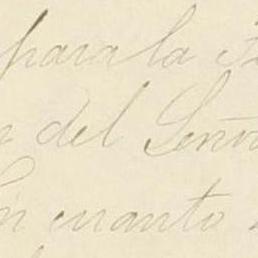 para la
del Señor
En cuanto